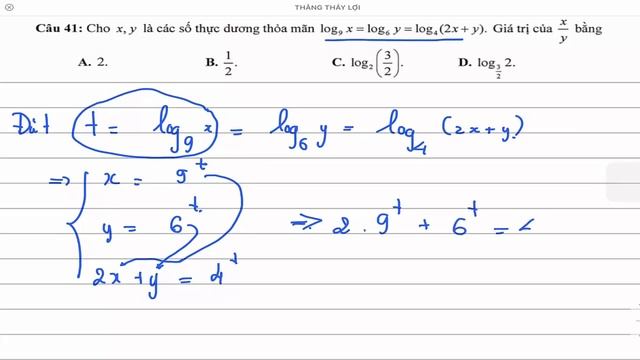 THẮNG THẦY LỢI
Câu 41: Cho x, y là các số thực dương thỏa mãn log₉ x = log₆ y = log₄ (2x + y). Giá trị của x/y bằng
A. 2. B. 1/2. C. log₂(3/2). D. log_{3/2} 2.
Đặt t = log₉ x = log₆ y = log₄ (2x + y)
⇒ { x = 9^t
y = 6^t ⇒ 2 . 9^t + 6^t =
2x + y = 4^t